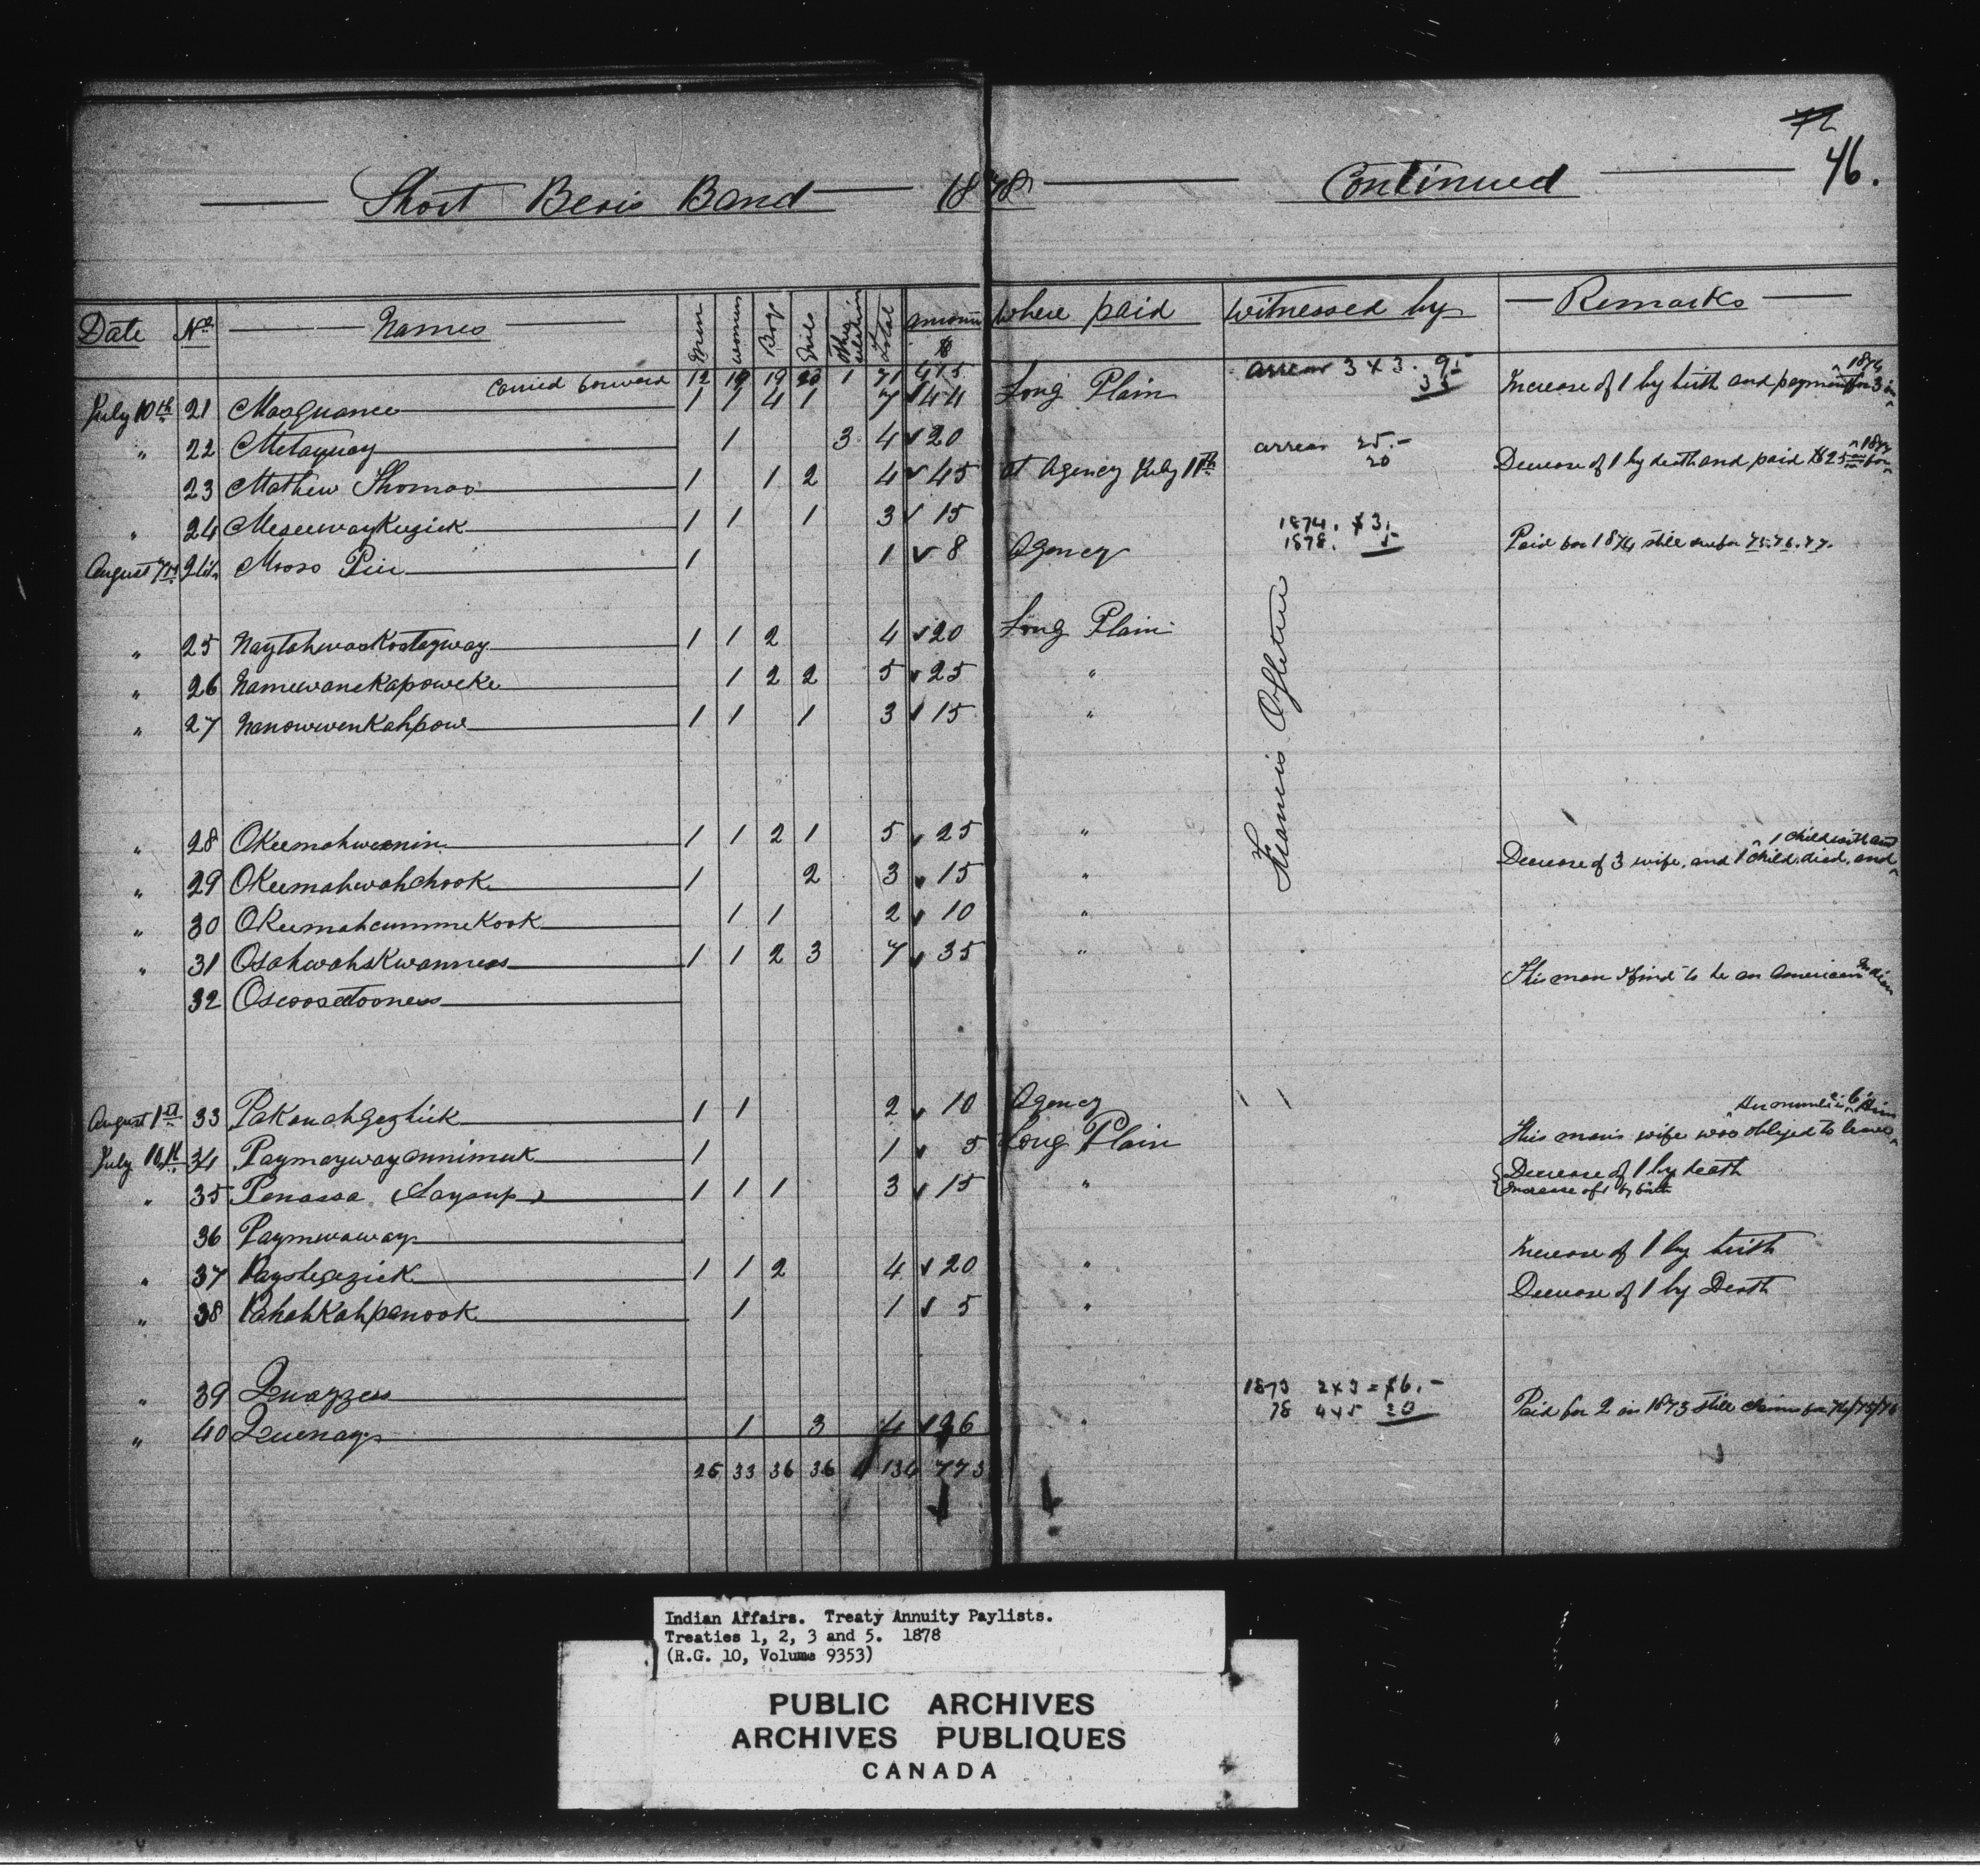 72
46.
Short Bears Band 1878 Continued
Date No Names Men women Boys Girls Other relation Total amount $ where paid witnessed by Remarks
Carried forward 12 19 19 20 1 71 415
July 10th 21 Masquance 1 1 4 1 7 44 Long Plain arrear 3 x 3. 9.- 35 Increase of 1 by birth and payment for 3 in 1874
" 22 Metaquay 1 3 4 20
23 Mathew Thomas 1 1 2 4 45 at Agency July 11th arrear 25.- 20 Decrease of 1 by death and paid $25 for
" 24 Meseewaykezick 1 1 1 3 15
August 7th Moose Pin 1 1 8 Agency 1874. $3. 1878. 5 Paid for 1874 still due for 75.76.77.
" 25 Naytahwaskostagway 1 1 2 4 20 Long Plain
" 26 Namewanekapoweke 1 2 2 5 25 "
" 27 Nanowwenkahpow 1 1 1 3 15 "
Francis Ogletree
" 28 Okeemahwenin 1 1 2 1 5 25 "
" 29 Okeemahwahchook 1 2 3 15 " Decrease of 3 wife, and 1 child died, and 1 child with aunt
" 30 Okeemahcummekook 1 1 2 10 "
" 31 Osahwahskwanness 1 1 2 3 7 35 "
32 Oscoosetooness This man I find to be an American Indian
August 1st 33 Pakonahgezhick 1 1 2 10 Agency
July 10th 34 Paymaywayannimuk 1 1 5 Long Plain This man's wife was obliged to leave
" 35 Penassa (Saysup) 1 1 1 3 15 " Decrease of 1 by death
Increase of 1 by birth
36 Paymewaway
" 37 Payshegezick 1 1 2 4 20 " Increase of 1 by birth
" 38 Pahahkahpenook 1 1 5 " Decrease of 1 by Death
" 39 Quayzess
" 40 Quenays 1 3 4 26 " 1873 2x3 = $6.- 78 4x5 20 Paid for 2 in 1873 still claims for 74/75/76
25 33 36 36 4 134 773
Indian Affairs. Treaty Annuity Paylists.
Treaties 1, 2, 3 and 5. 1878
(R.G. 10, Volume 9353)
PUBLIC ARCHIVES
ARCHIVES PUBLIQUES
CANADA